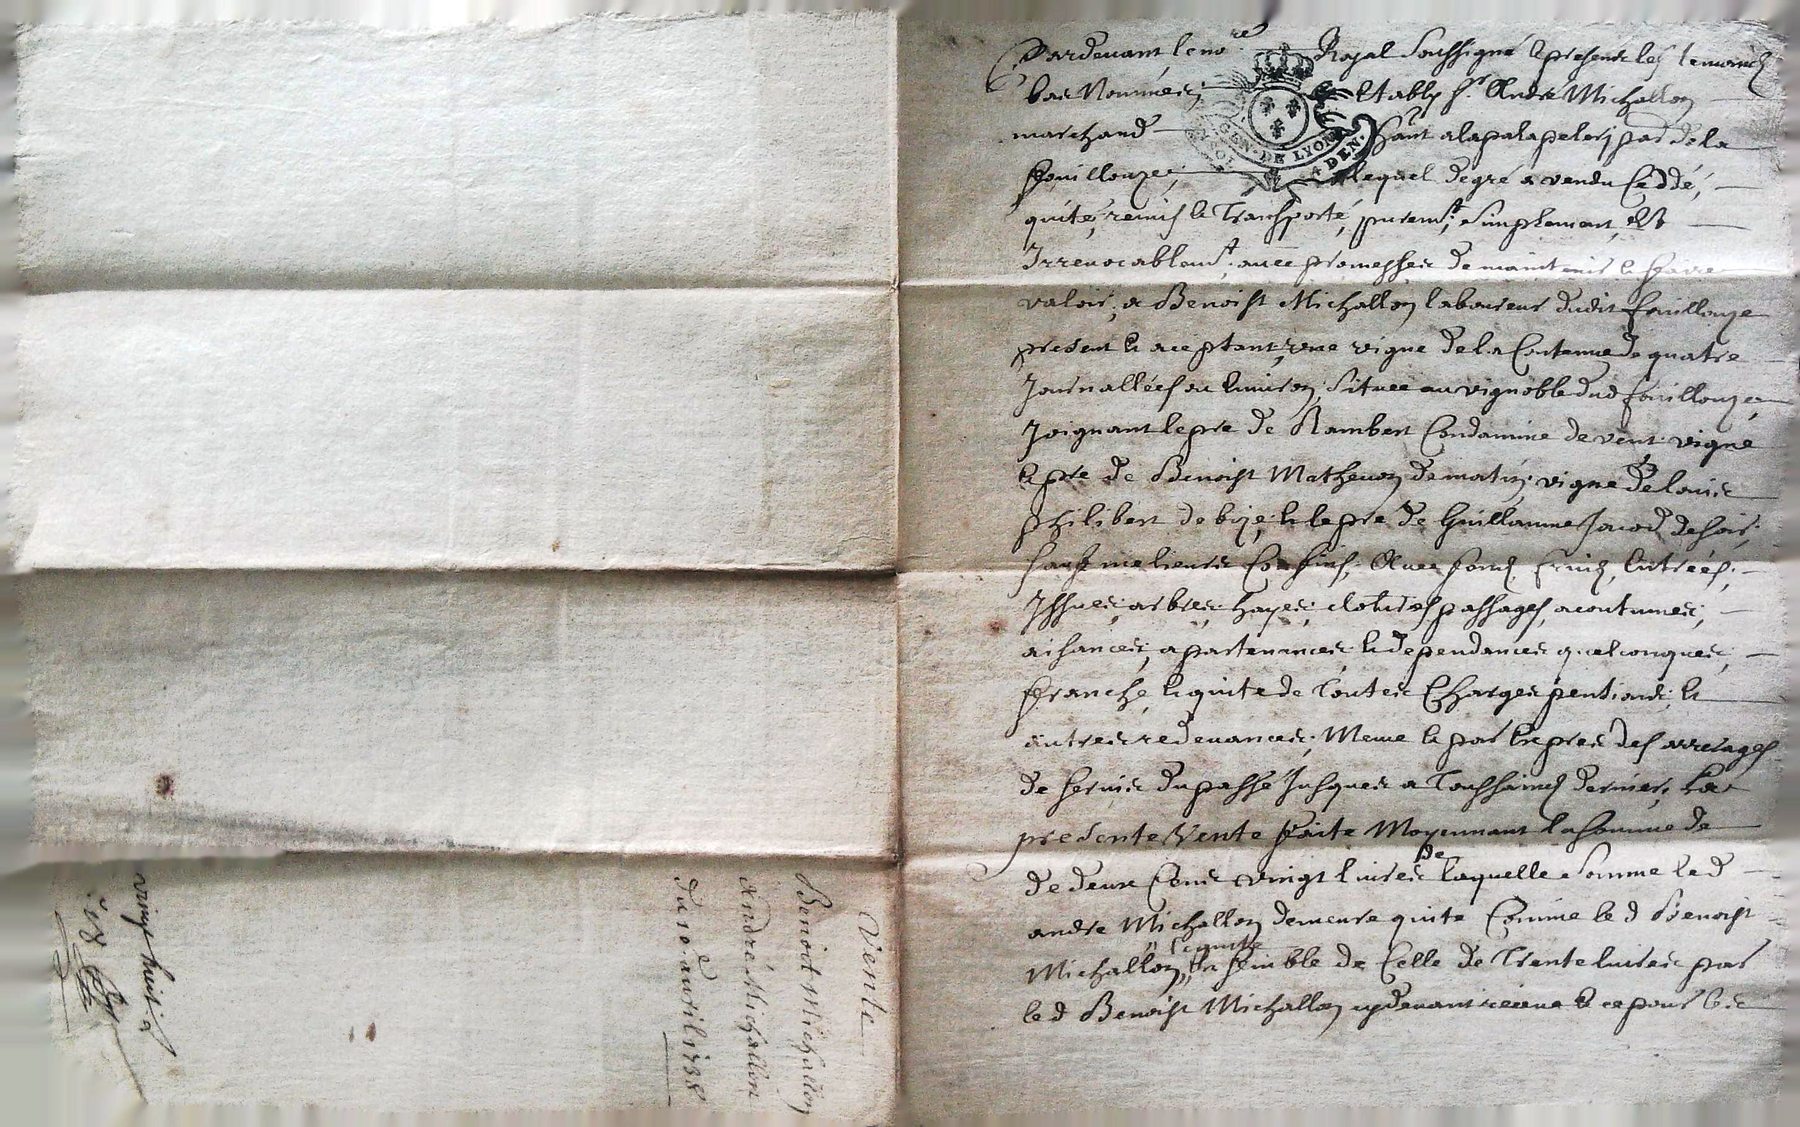 Pardevant le no.re Royal soussigné & presents les temoins
bas Nommés; Etably s.r André Michallon
marchand hant a la palapelerj par de la
fouillouze; lequel de gré a vendu Ceddé,
quité, remis & Transporté, purem.t, simplement, et
Irrevocablem.t, avec promesses de maintenir & faire
valoir, a Benoist Michallon laboureur dudit fouillouze
present & aceptant, une vigne de la Contenue de quatre
Journallées ou environ, située au vignoble dud fouillouze,
Joignant le pre de Rambert Condamine de vent, vigne
& pre de Benoist Mathevon de matin, vigne de Louis
philibert de bize, & le pre de Guillaume Jacod de soir,
sauf meilleurs Confins, Avec fonds, fruits, Entrées,
Issues, arbres, hayes, clotures passages, acoutumés,
aisances, apartenances, & dependances quelconques,
franche, & quite de Toutes Charges pentions, &
autres redevances, Meme & par Exprés des arrerages
de servis du passé Jusques a Toussaints dernier, La
presente Vente faite Moyennant la somme de
de deux Cens vingt livres de laquelle somme led
andre Michallon demeure quite Comme led Benoist
Michallon, ensemble de Celle de Trente livres par
led Benoist Michallon cydevant receue & ce pour les
GEN. DE LYON
4 DEN.
Vente
Benoot Michallon
André Michallon
du 10.e avril 1738
vingt huit s